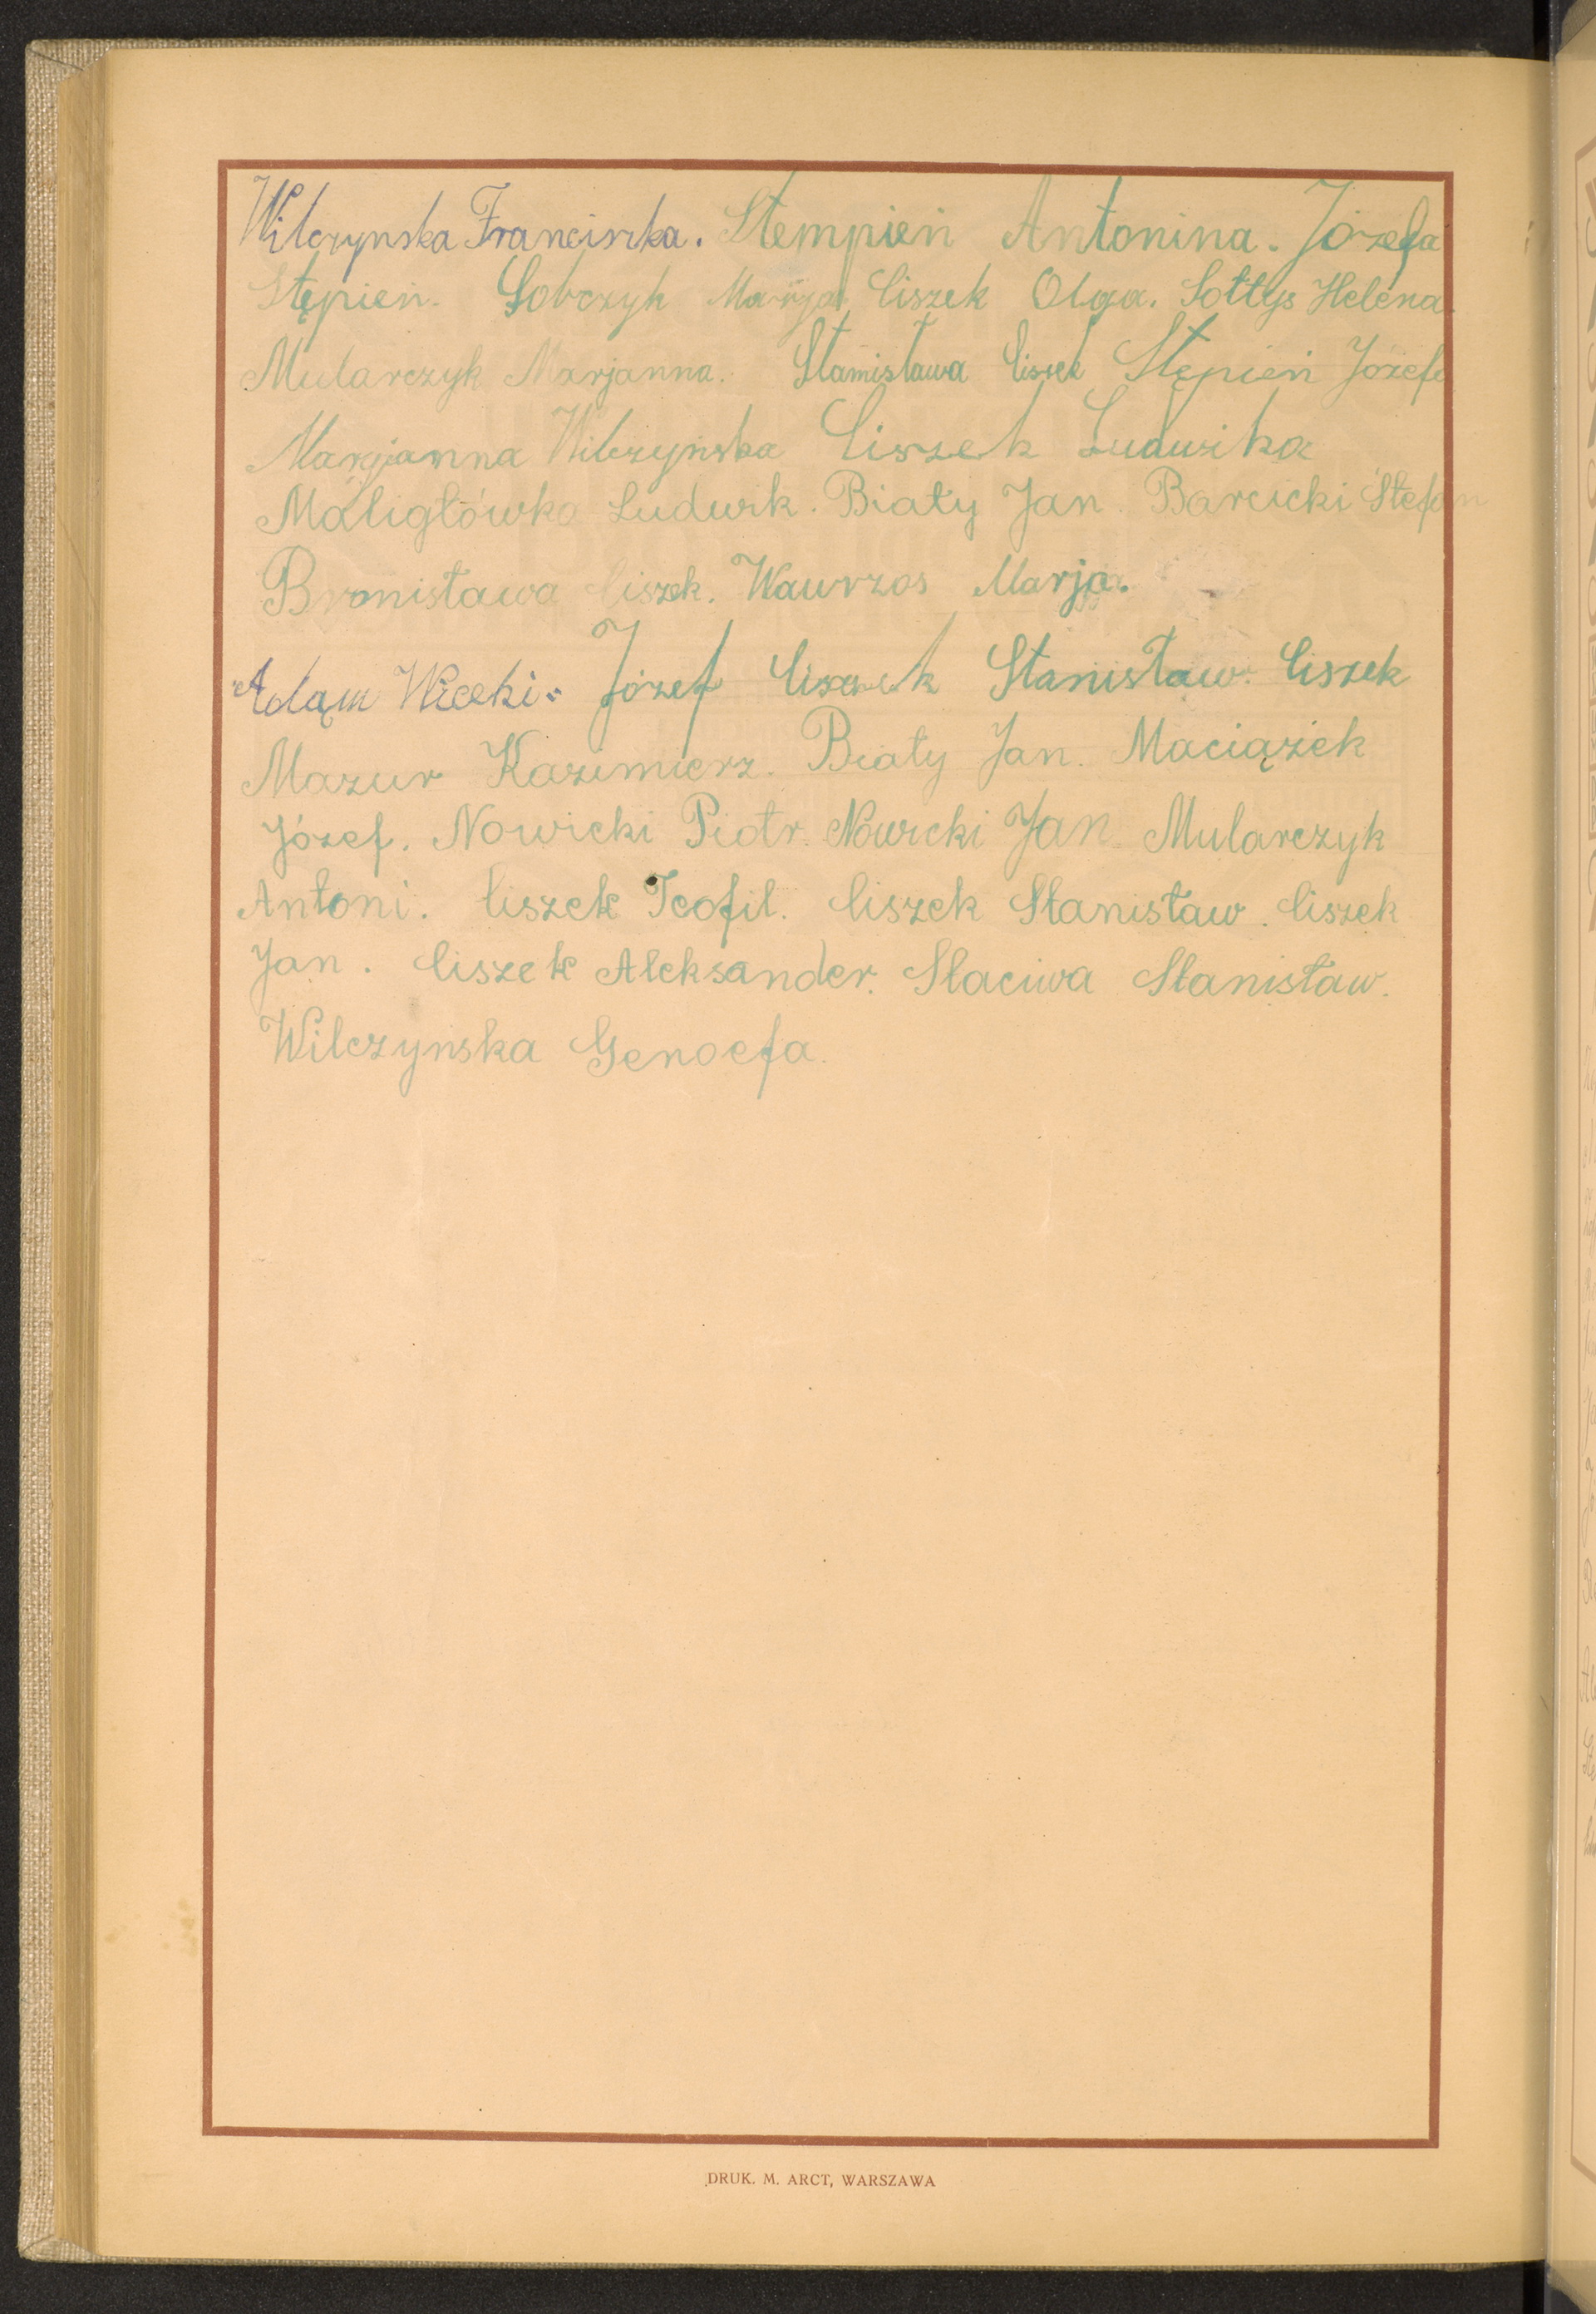 Wilczynska Franciszka. Stempień Antonina. Józefa
Stępień. Sobczyk Marja Ciszek Olga. Sołtys Helena.
Mularczyk Marjanna. Stanisława Ciszek Stępień Józefa
Marjanna Wilczyńska Ciszek Ludwika
Maligłówka Ludwik. Biały Jan. Barcicki Stefan
Bronisława Ciszek. Wawrzos Marja.
Adam Wicki. Józef Ciszek Stanisław Ciszek
Mazur Kazimierz. Biały Jan. Maciążek
Józef. Nowicki Piotr. Nowicki Jan. Mularczyk
Antoni. Ciszek Teofil. Ciszek Stanisław. Ciszek
Jan. Ciszek Aleksander. Słaciwa Stanisław.
Wilczynska Genoefa.
DRUK. M. ARCT, WARSZAWA